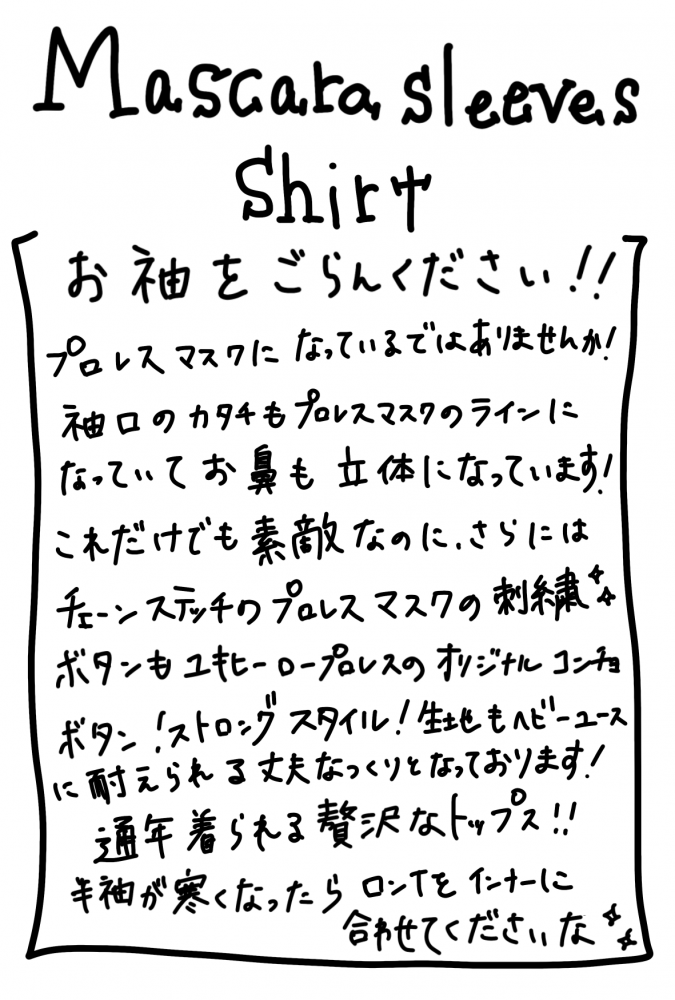 Mascara sleeves
Shirt
お袖をごらんください!!
プロレスマスクになっているではありませんか!
袖口のカタチもプロレスマスクのラインに
なっていてお鼻も立体になっています!
これだけでも素敵なのに、さらには
チェーンステッチのプロレスマスクの刺繍
ボタンもユキヒーロープロレスのオリジナルコンチョ
ボタン!ストロングスタイル!生地もヘビーユース
に耐えられる丈夫なつくりとなっております!
通年着られる贅沢なトップス!!
半袖が寒くなったらロンTをインナーに
合わせてくださいな